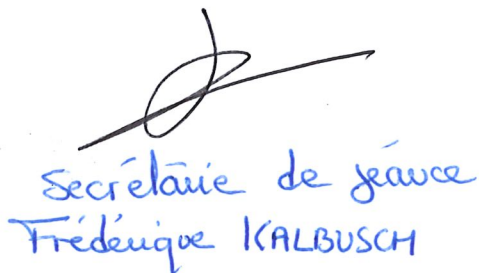 Secrétaire de séance
Frédérique KALBUSCH